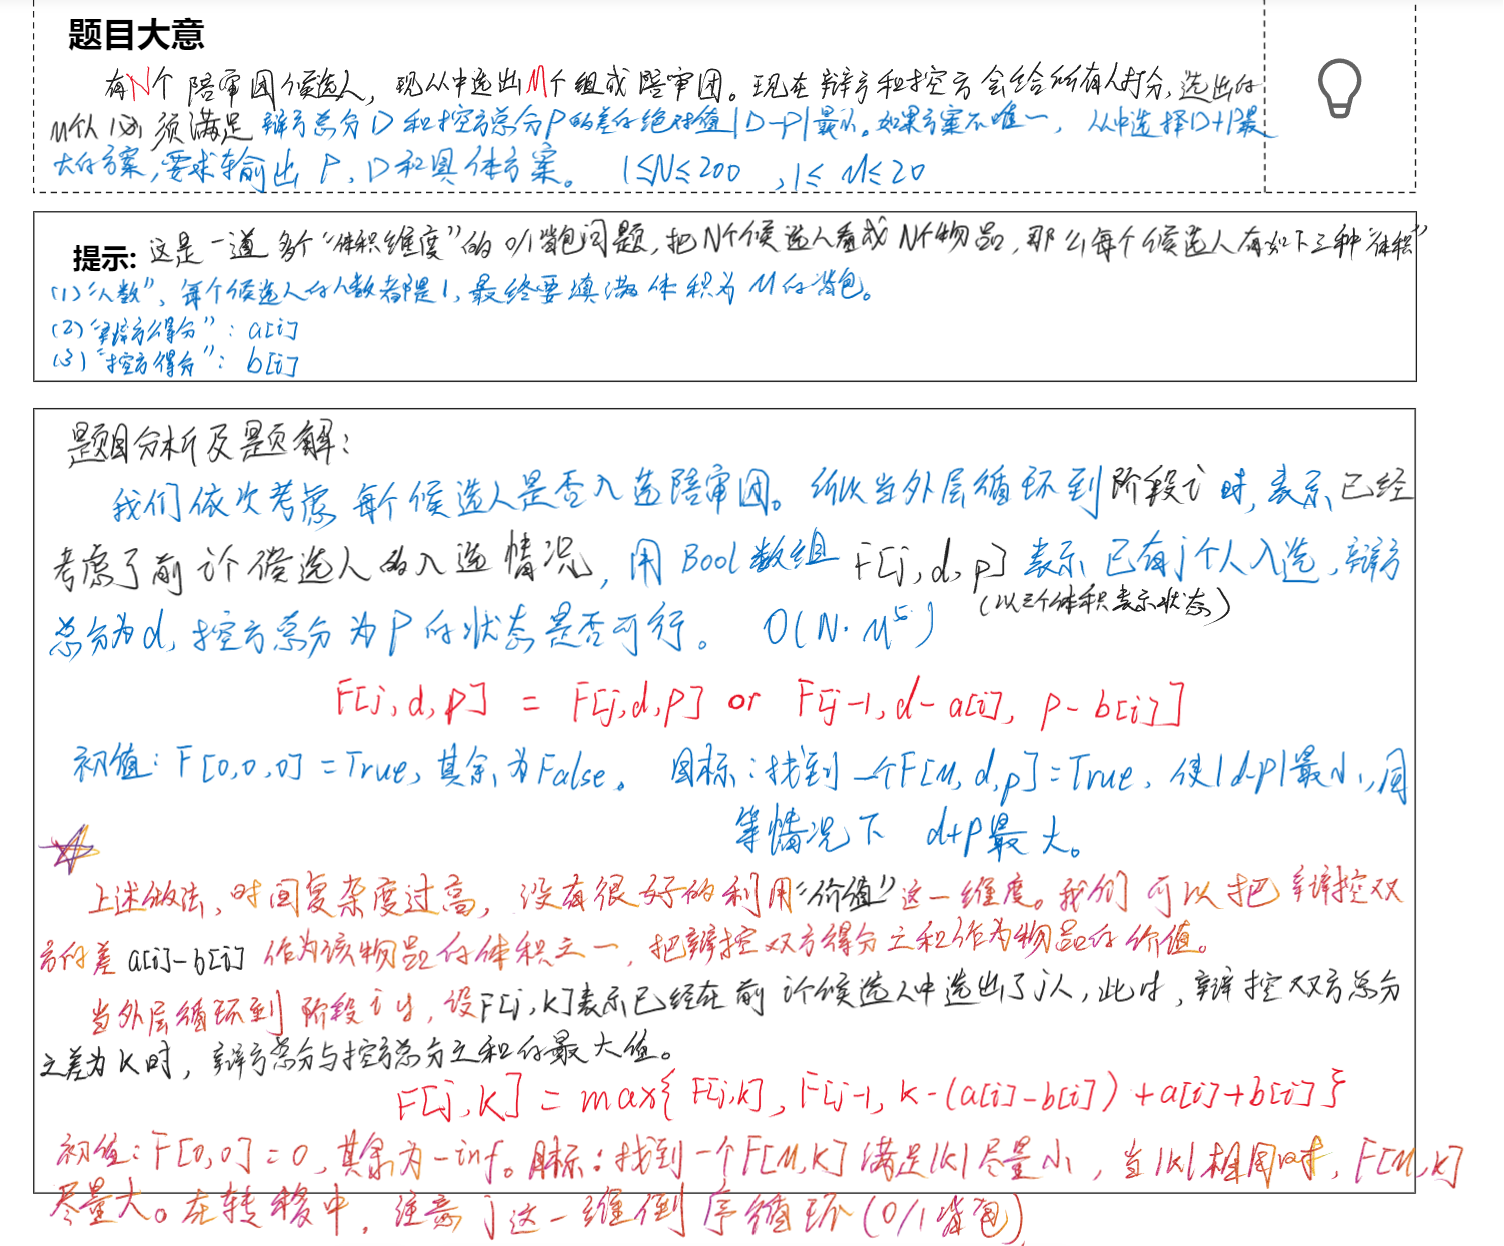 题目大意
有N个陪审团候选人，现从中选出M个组成陪审团。现在辩方和控方会给所有人打分，选出的
M个人必须满足辩方总分D和控方总分P的差的绝对值|D-P|最小。如果方案不唯一，从中选择D+P最
大的方案，要求输出P、D和具体方案。 1≤N≤200 ,1≤ M≤20
提示: 这是一道多个“体积维度”的0/1背包问题，把N个候选人看成N个物品，那么每个候选人有如下三种“体积”
(1)“人数”，每个候选人的人数都是1，最终要填满体积为M的背包。
(2)“辩方得分”: a[i]
(3)“控方得分”: b[i]
题目分析及题解:
我们依次考虑每个候选人是否入选陪审团。所以当外层循环到阶段i时，表示已经
考虑了前i个候选人的入选情况，用Bool数组F[j,d,p]表示已有j个人入选，辩方
(以三个体积表示状态)
总分为d，控方总分为P的状态是否可行。 O(N·M⁵)
F[j,d,p] = F[j,d,p] or F[j-1,d-a[i], p-b[i]]
初值: F[0,0,0]=True，其余为False。 目标:找到一个F[M,d,p]=True，使|d-p|最小，同
等情况下 d+p最大。
上述做法，时间复杂度过高，没有很好的利用“价值”这一维度。我们可以把辩控双
方的差a[i]-b[i]作为该物品的体积之一，把辩控双方得分之和作为物品的价值。
当外层循环到阶段i时，设F[j,k]表示已经在前i个候选人中选出了j人，此时，辩控双方总分
之差为k时，辩方总分与控方总分之和的最大值。
F[j,k] = max{F[j,k], F[j-1, k-(a[i]-b[i])+a[i]+b[i]}
初值:F[0,0]=0，其余为-inf。目标:找到一个F[M,k]满足|k|尽量小，当|k|相同时，F[M,k]
尽量大。在转移中，注意j这一维倒序循环(0/1背包)